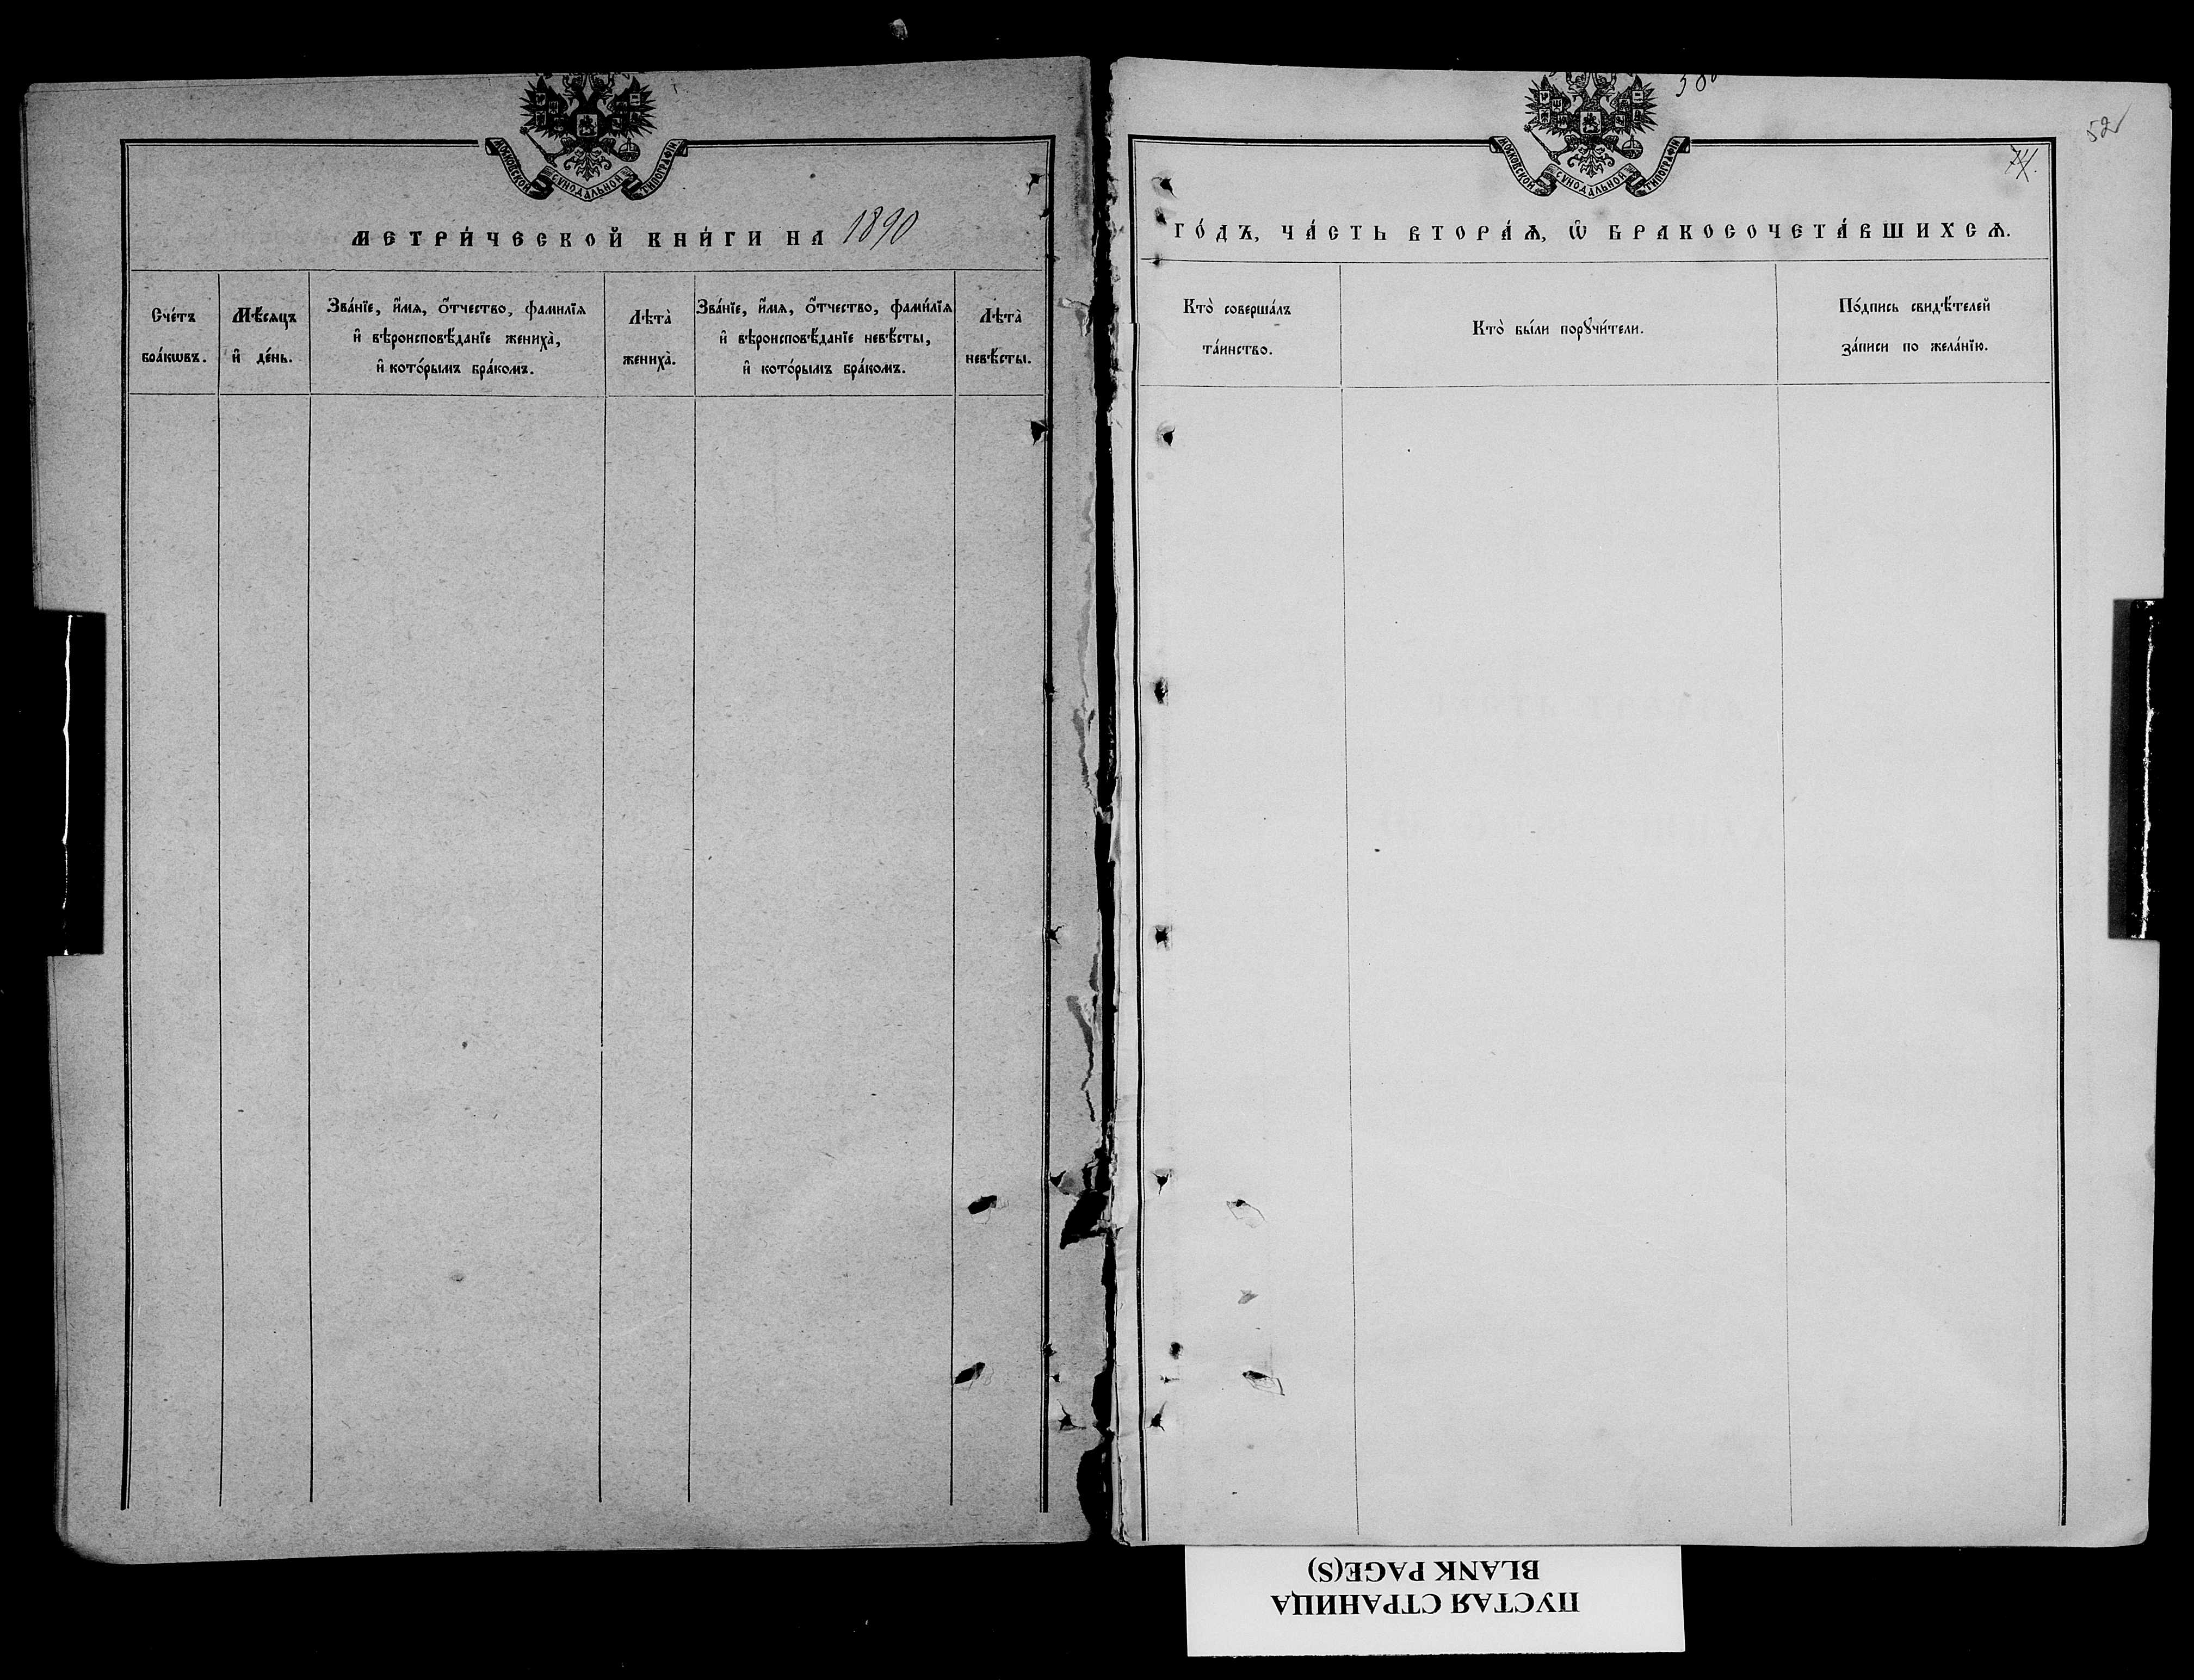 МОСКОВСКОЙ СѴНОДАЛЬНОЙ ТИПОГРАФІИ
МЕТРИ́ЧЕСКОЙ КНИ́ГИ НА 1890
Сче́тъ
бра́кѡвъ.
Мѣ́сяцъ
и҆ де́нь.
Зва́нїе, и҆́мѧ, ѻ҆́тчество, фамилїѧ
и҆ вѣроисповѣ́данїе женихѐ,
и҆ кото́рымъ бра́комъ.
Лѣта̀
жениха̀.
Зва́нїе, и҆́мѧ, ѻ҆́тчество, фами́лїѧ
и҆ вѣроисповѣ́данїе невѣ́сты,
и҆ кото́рымъ бра́комъ.
Лѣта̀
невѣ́сты.
52
74.
МОСКОВСКОЙ СѴНОДАЛЬНОЙ ТИПОГРАФІИ
ГО́ДЪ, ЧА́СТЬ ВТОРА́Ѧ, Ѡ҆ БРАКОСОЧЕТА́ВШИХСѦ.
Кто̀ соверша́лъ
та́инство.
Кто̀ бы́ли порꙋчи́тели.
По́дпись свидѣ́телей
за́писи по жела́нїю.
ПУСТАЯ СТРАНИЦА
BLANK PAGE(S)